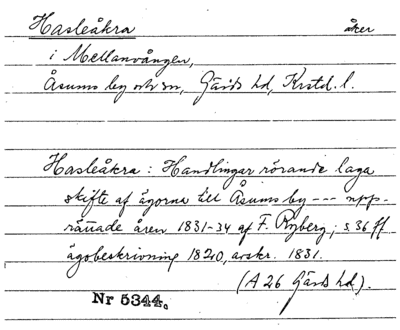 Hasleåkra åker
i Mellanvången,
Åsums by och sn, Gärds hd, Krstd. l.
Hasleåkra : Handlingar rörande laga
skifte af ägorna till Åsums by --- upp-
rättade åren 1831-34 af F. Ryberg; s. 36 ff
ägobeskrivning 1820, avskr. 1831.
(A 26 Gärds hd).
Nr 5344.